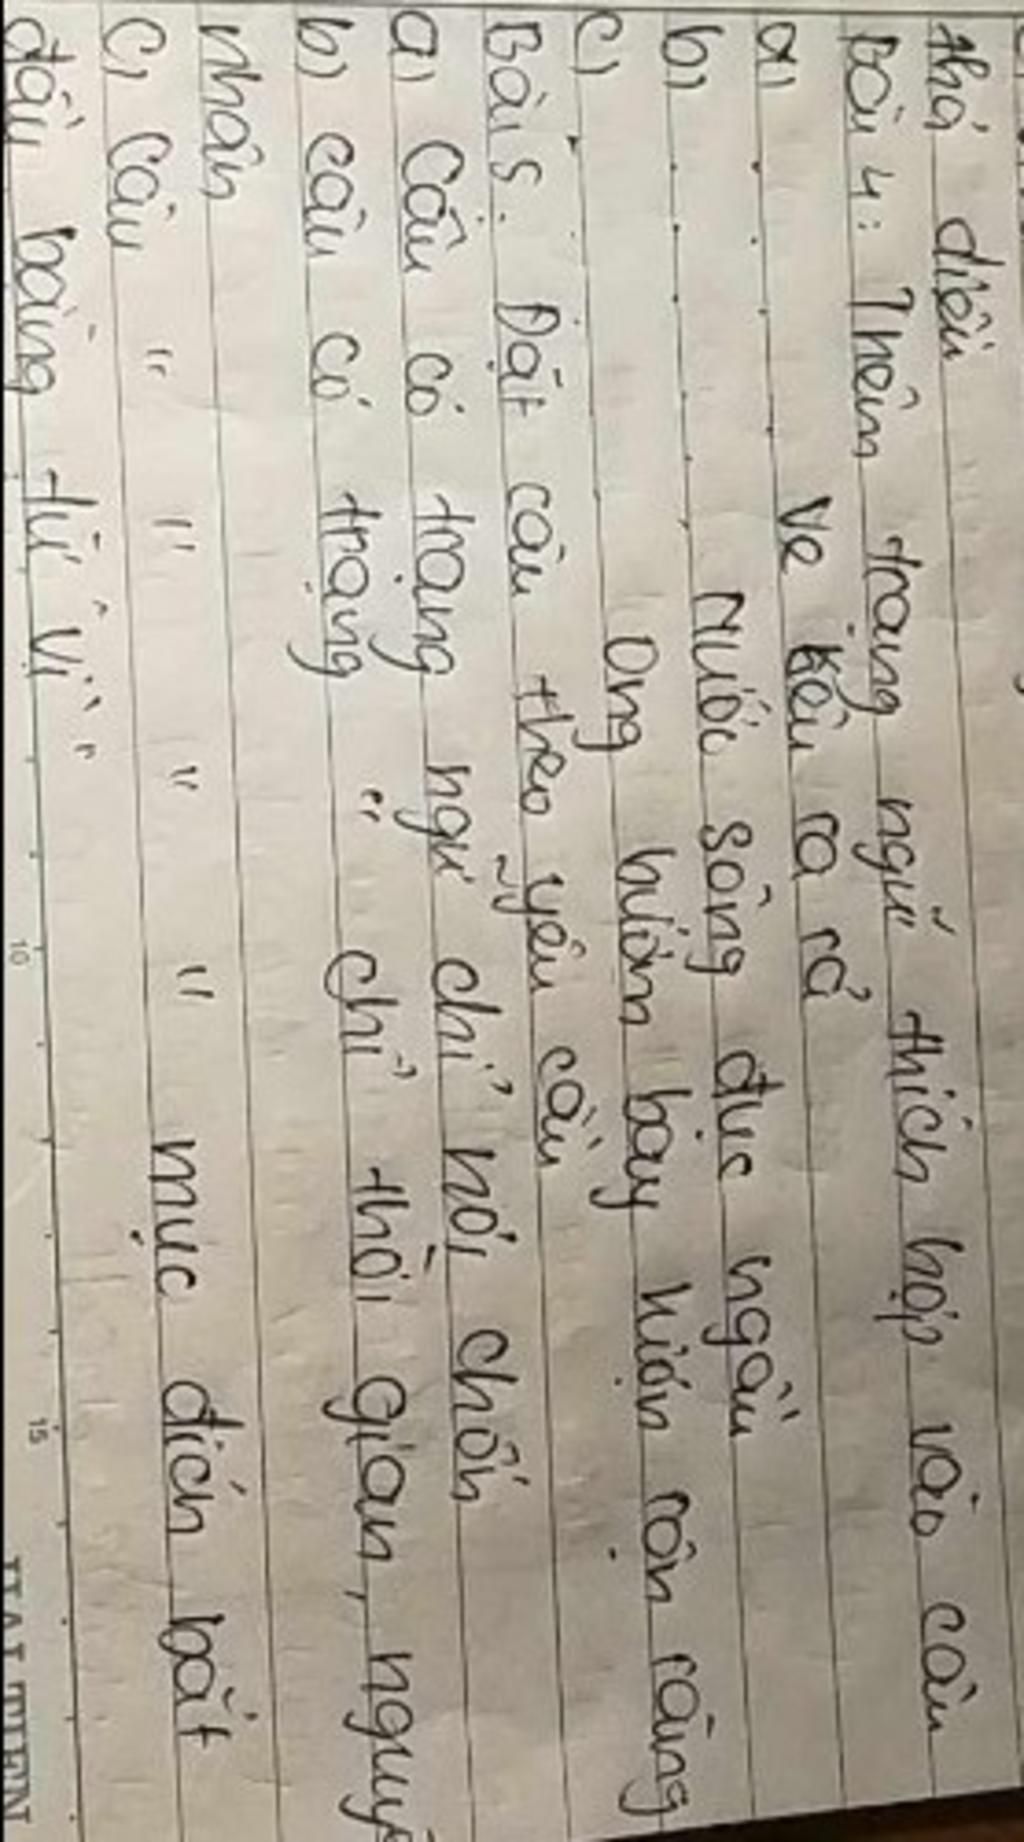 thả diều
Bài 4: Thêm trạng ngữ thích hợp vào câu
a) ........ Ve kêu ra rả
b) ........ Nước sông đục ngầu
c) Ong bướm bay lượn rộn ràng
Bài 5: Đặt câu theo yêu cầu
a) Câu có trạng ngữ chỉ nơi chốn
b) câu có trạng " chỉ thời gian, nguyê
nhân
c) Câu " " " " mục đích bắt
đầu bằng từ "Vì"
10 15